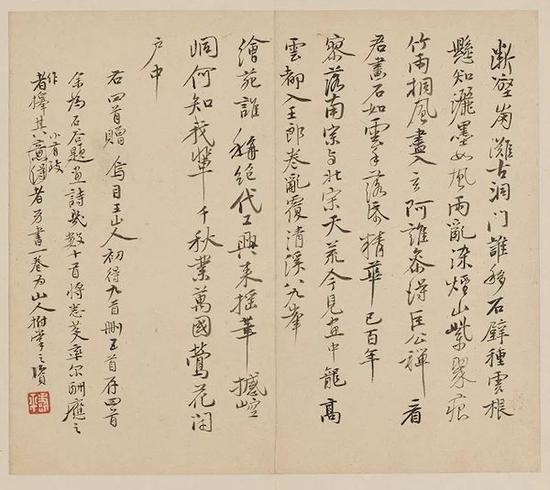 斷壑崩灘古洞門誰移石壁種雲根
懸知灑墨如風雨亂染煙山紫翠痕
竹雨桐風盡入玄阿誰參得巨公禪看
君畫石如雲手落紙精華已百年
寥落南宋與北宋天荒今見畫中龍高
雲都入王郎卷亂覆清溪八九峯
繪苑誰稱絕代工興來搖筆撼崆
峒何知我輩千秋業萬國鶯花閉
戶中
右四首贈烏目王山人初得九首刪五首存四首
余為石谷題畫詩幾數十首將悉芟率爾酬應之
作者擇其意得者另書一卷為山人掌之資